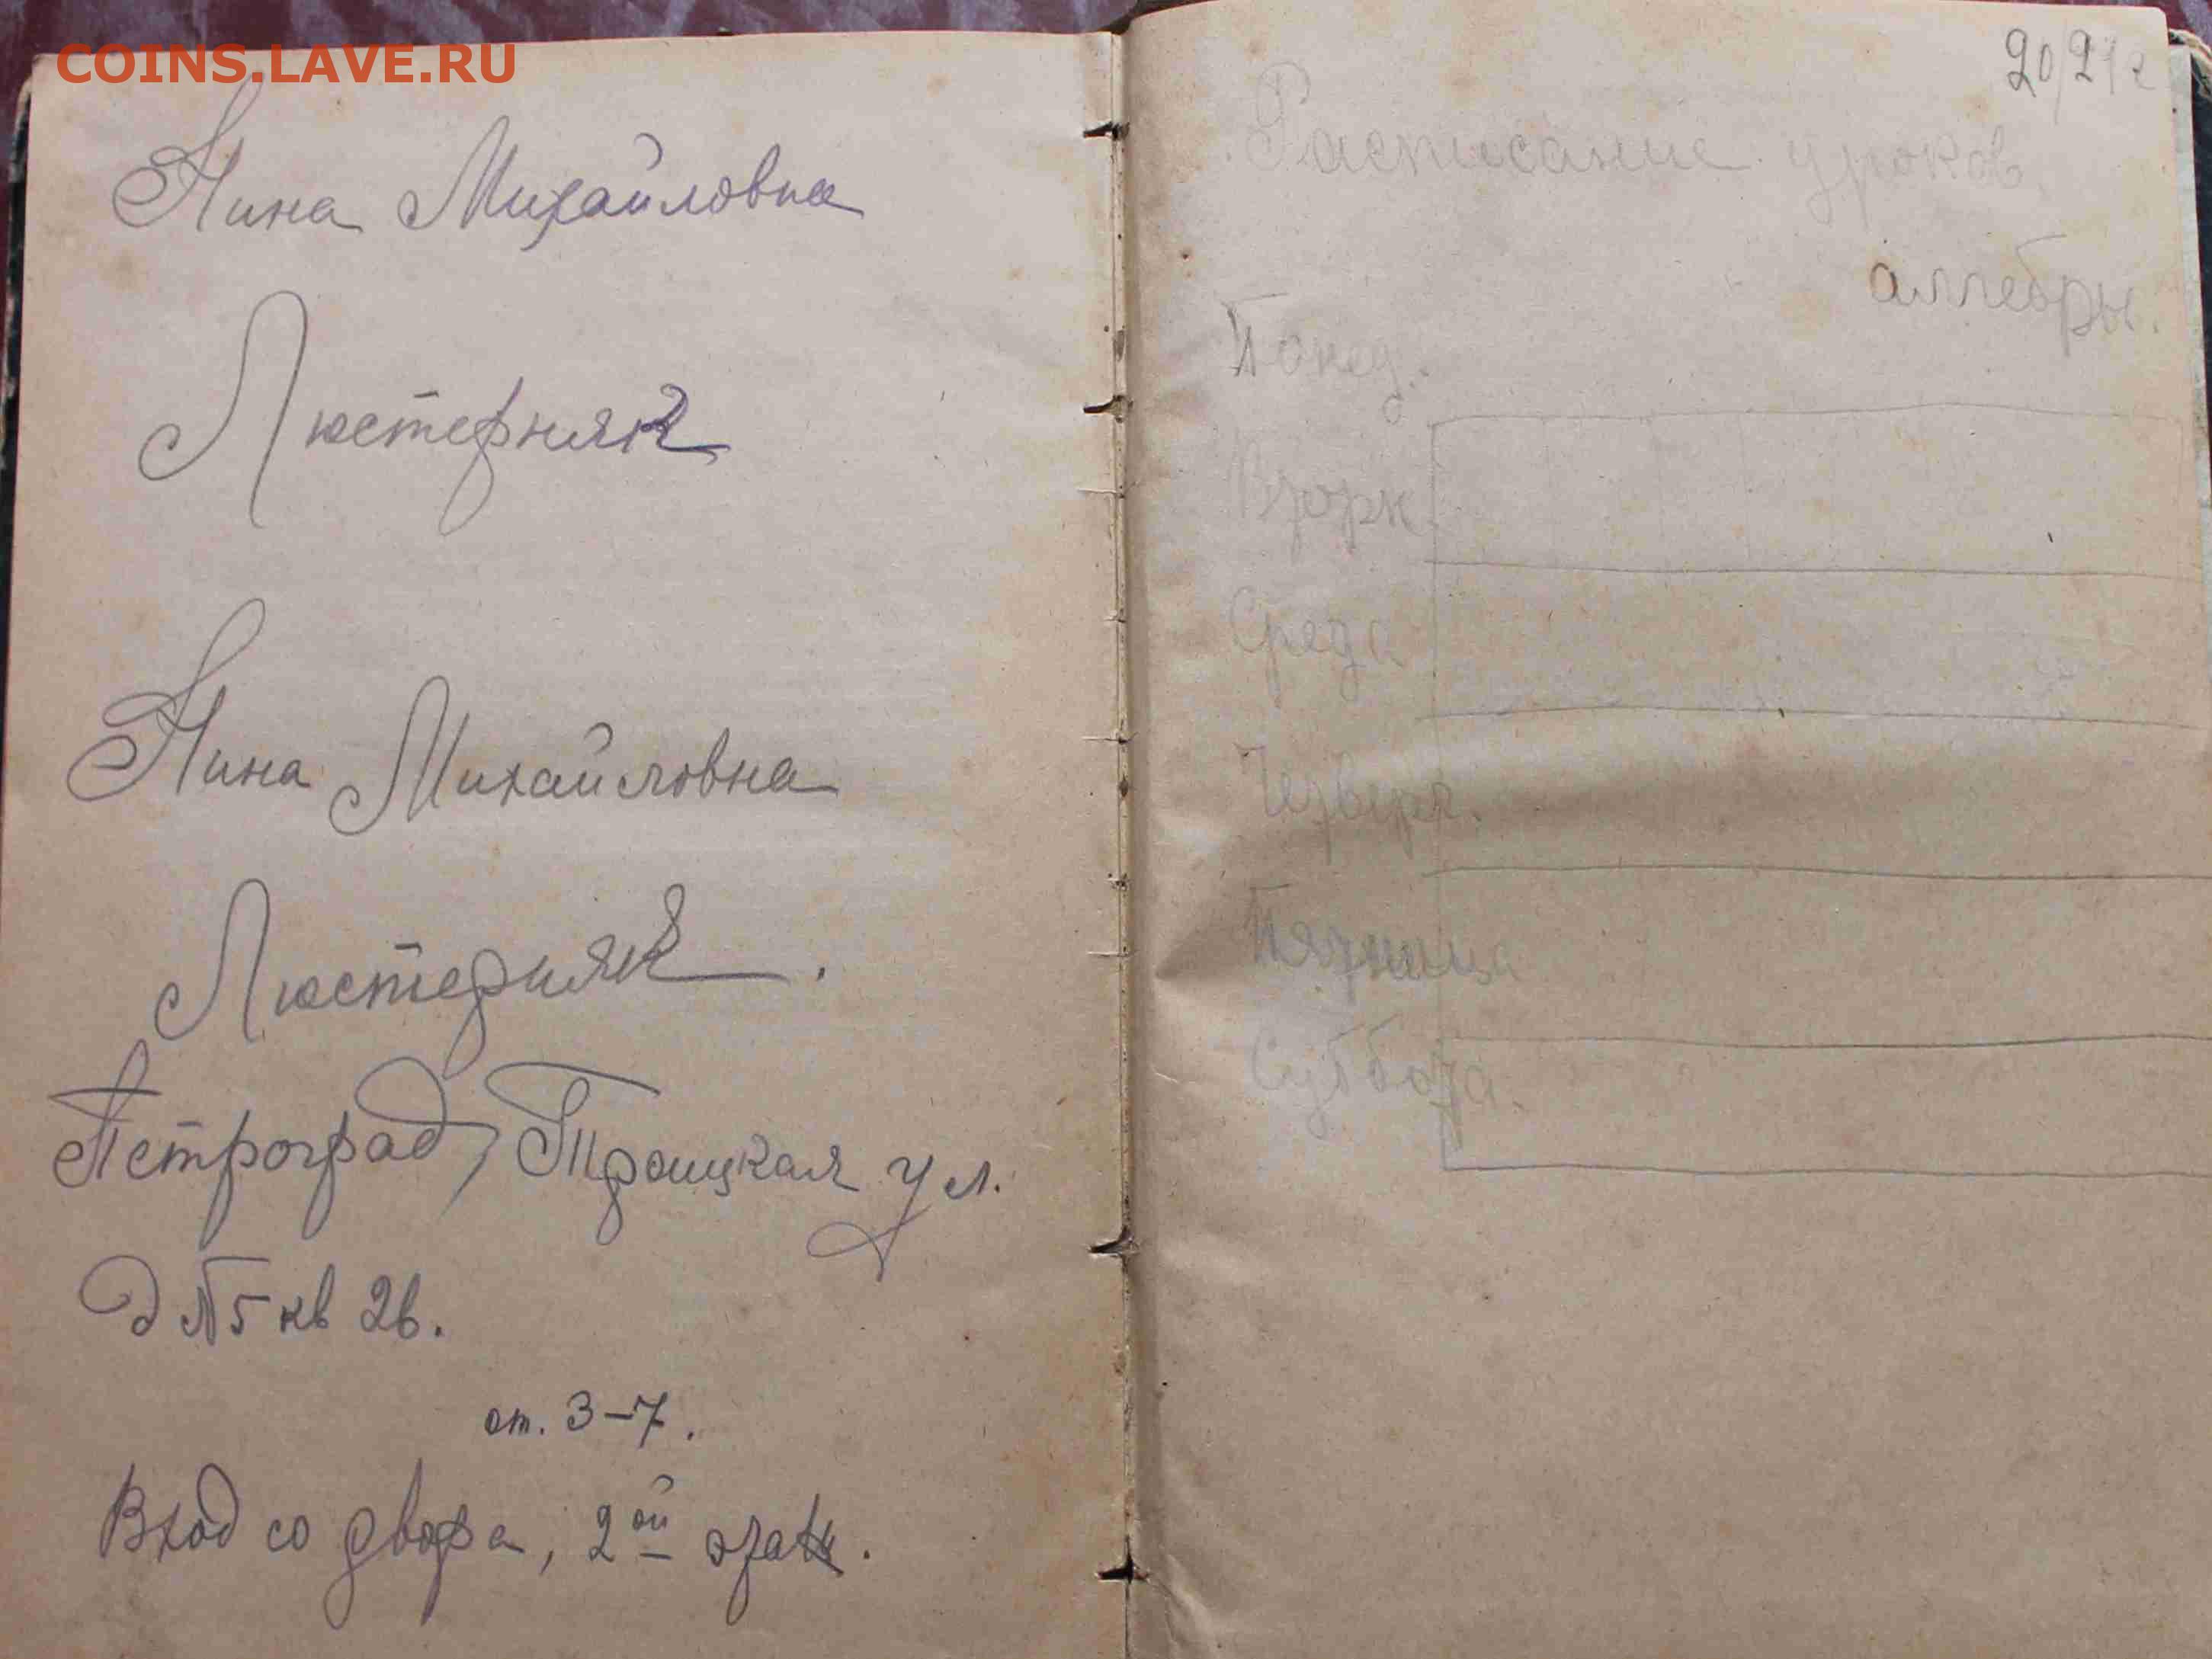 COINS.LAVE.RU
Нина Михайловна
Люстерняк
Нина Михайловна
Люстерняк.
Петроград, Троицкая ул.
д №5 кв 2в.
от. 3-7.
Вход со двора, 2ой этаж.
20/21 г
Расписание уроков
алгебры.
Понед.
Вторн.
Среда
Четверг.
Пятница
Суббота.